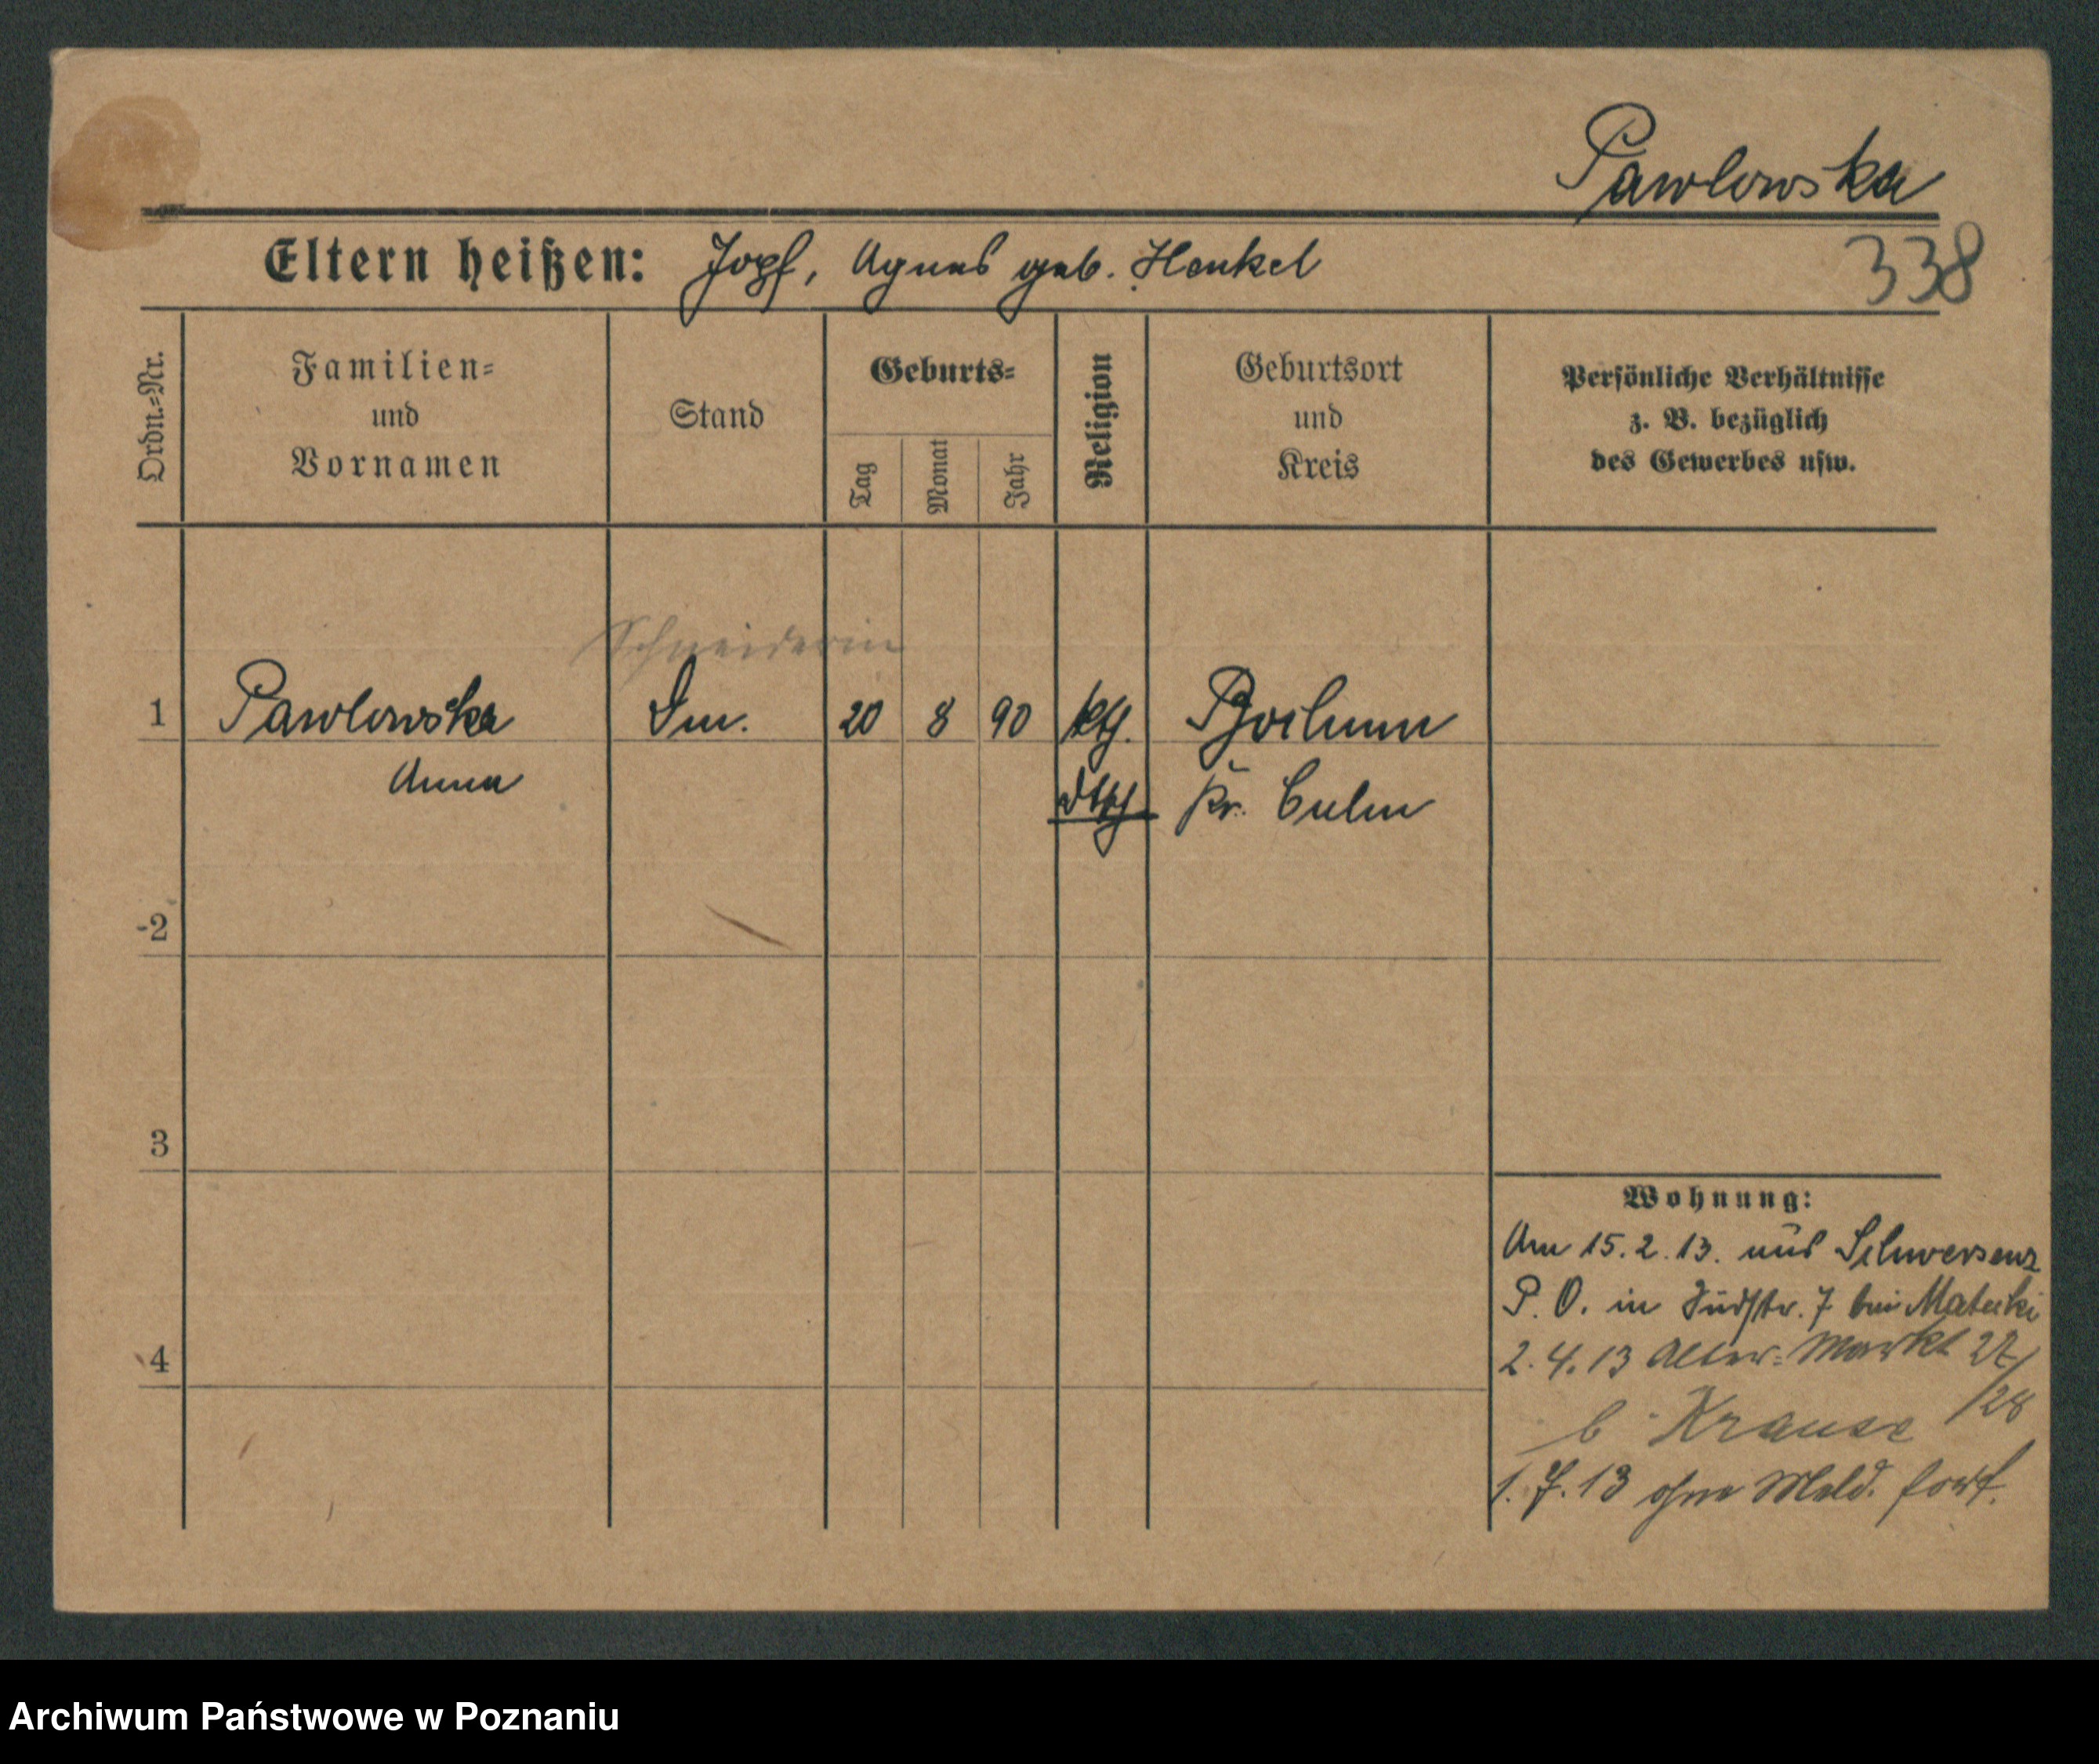 Pawlowska
338
Eltern heißen: Josef, Agnes geb. Henkel
Ordn.-Nr.
Familien-
und
Vornamen
Stand
Geburts-
Tag
Monat
Jahr
Religion
Geburtsort
und
Kreis
Persönliche Verhältnisse
z. B. bezüglich
des Gewerbes usw.
Schneiderin
1 Pawlowska 20 8 90 kth.
Anna dtsch Kr. Culm
2
3
Wohnung:
Am 15.2.13. aus Schwersenz
P. O. in Südstr. 7 bei Matecki
4
2.4.13 Alter-Markt 27/
/28
b. Krause
1.7.13 ohne Meld. fort.
Archiwum Państwowe w Poznaniu